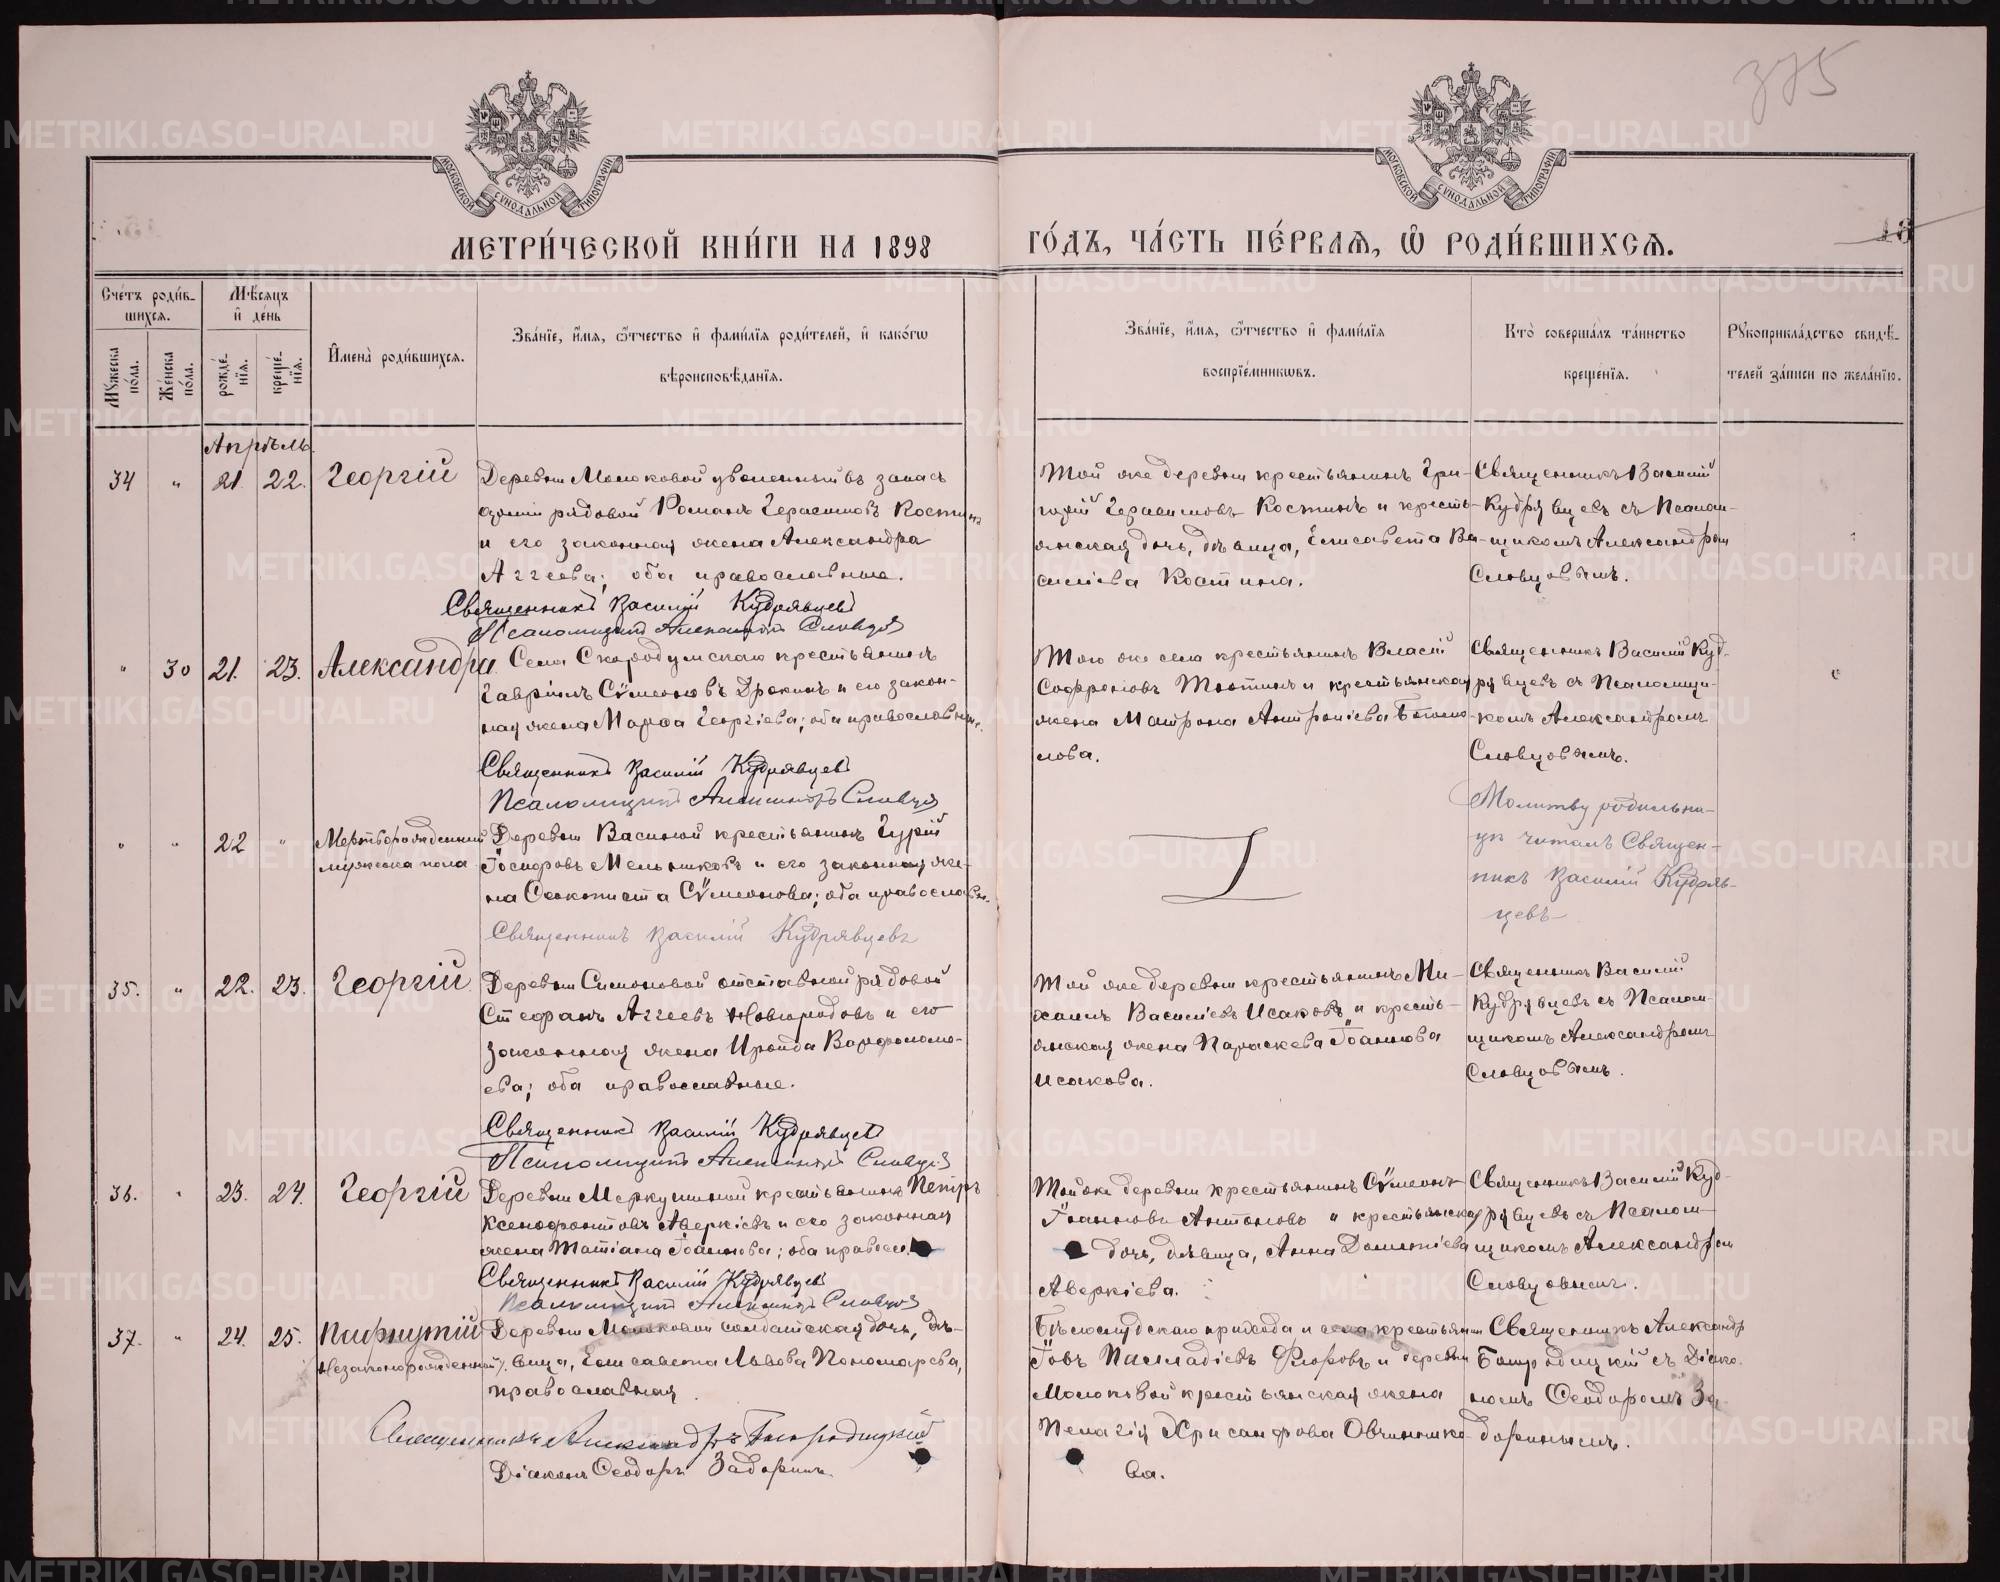 375
МОСКОВСКОЙ СѴНОДАЛЬНОЙ ТИПОГРАФІИ
МОСКОВСКОЙ СѴНОДАЛЬНОЙ ТИПОГРАФІИ
МЕТРИ́ЧЕСКОЙ КНИ́ГИ НА 1898
ГО́ДЪ, ЧА́СТЬ ПЕ́РВАѦ, Ѡ РОДИ́ВШИХСѦ.
16
Сче́тъ роди́в-
шихсѧ.
Му́жеска по́ла.
Же́нска по́ла.
Мѣ́сѧцъ
и҆ де́нь
рожде́-
нїѧ.
креще́-
нїѧ.
И҆мена̀ роди́вшихсѧ.
Зва́нїе, и҆́мѧ, ѻ҆́тчество и҆ фами́лїѧ роди́телей, и҆ како́гѡ
вѣроисповѣ́данїѧ.
Зва́нїе, и҆́мѧ, ѻ҆́тчество и҆ фами́лїѧ
воспрїе́мникѡвъ.
Кто̀ соверша́лъ та́инство
креще́нїѧ.
Рукоприкла́дство свидѣ́-
телей за́писи по жела́нїю.
Апрѣль.
34 " 21. 22. Георгій
Деревни Молоковой уволенный въ запасъ
арміи рядовой Романъ Герасимовъ Костинъ
и его законная жена Александра
Аггеева; оба православные.
Священникъ Василій Кудрявцевъ
Псаломщикъ Александръ Словцовъ
Той же деревни крестьянинъ Гри-
горій Герасимовъ Костинъ и кресть-
янская дочь, дѣвица, Елисавета Ва-
силіева Костина.
Священникъ Василій
Кудрявцевъ съ Псалом-
щикомъ Александромъ
Словцовымъ.
" 30 21. 23. Александра
Села Скородумскаго крестьянинъ
Гавріилъ Сѵмеоновъ Дрокинъ и его закон-
ная жена Марѳа Георгіева; оба православные.
Священникъ Василій Кудрявцевъ
Псаломщикъ Александръ Словцовъ
Того же села крестьянинъ Власій
Софроновъ Тютинъ и крестьянская
жена Матрона Антоніева
лова.
Священникъ Василій Куд-
рявцевъ съ Псаломщи-
комъ Александромъ
Словцовымъ.
" " 22 " Мертворожденный
мужеска пола
Деревни Васиной крестьянинъ Гурій
Іосифовъ Мельниковъ и его законная же-
на Ѳеоктиста Сѵмеонова; оба православн.
Священникъ Василій Кудрявцевъ
Молитву родильни-
цѣ читалъ Священ-
никъ Василій Кудряв-
цевъ
35. " 22. 23. Георгій
Деревни Симоновой отставной рядовой
Стефанъ Аггеевъ Новгородовъ и его
законная жена Ираида Варфоломе-
ева; оба православные.
Священникъ Василій Кудрявцевъ
Псаломщикъ Александръ Словцовъ
Той же деревни крестьянинъ Ми-
хаилъ Василіевъ Исаковъ и кресть-
янская жена Параскева Іоаннова
Исакова.
Священникъ Василій
Кудрявцевъ съ Псалом-
щикомъ Александромъ
Словцовымъ.
36. " 23. 24. Георгій
Деревни Меркушиной крестьянинъ Петръ
Ксенофонтовъ Аверкіевъ и его законная
жена Татіана Іоаннова; оба правосл.
Священникъ Василій Кудрявцевъ
Псаломщикъ Александръ Словцовъ
Той же деревни крестьянинъ Сѵмеонъ
Іоанновъ Антоновъ и крестьянская
дочь, дѣвица, Анна Дометіева
Аверкіева.
Священникъ Василій Куд-
рявцевъ съ Псалом-
щикомъ Александромъ
Словцовымъ.
37. " 24. 25. Пафнутій
незаконорожденный.
Деревни Молоковой солдатская дочь, дѣ-
вица, Елисавета Львова Пономарева,
православная.
Священникъ Александръ Богородицкій
Діаконъ Ѳеодоръ Задоринъ.
Бѣлослудскаго прихода и села крестьянинъ
Іовъ Палладіевъ Флоровъ и деревни
Молоковой крестьянская жена
Пелагія Хрисанфова Овчиннико-
ва.
Священникъ Александръ
Богородицкій съ Діако-
номъ Ѳеодоромъ За-
доринымъ.
METRIKI.GASO-URAL.RU